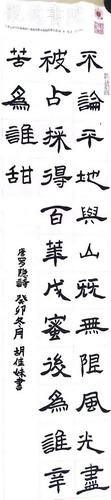 不論平地與山無限風光盡
被占採得百華成蜜後爲誰辛
苦爲誰甜
唐羅隱詩 癸卯冬月 胡佳妹書